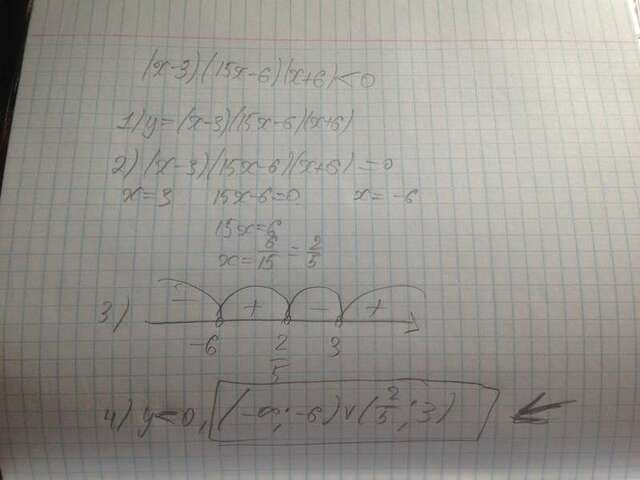 (x-3)(15x-6)(x+6)<0
1) y=(x-3)(15x-6)(x+6)
2) (x-3)(15x-6)(x+6)=0
x=3 15x-6=0 x=-6
15x=6
x=6/15=2/5
3) - + - +
-6 2/5 3
4) y<0, (-∞;-6)∨(2/5;3)